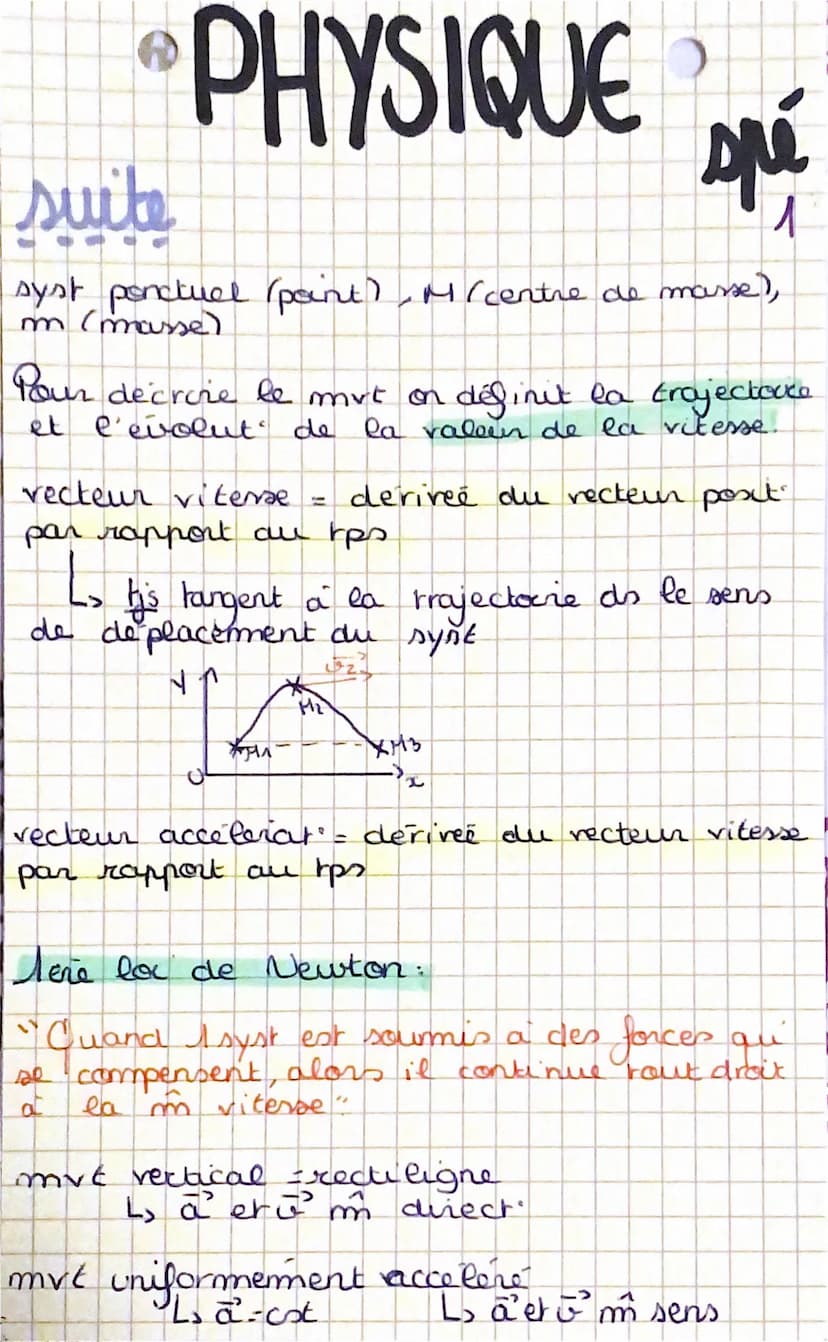 PHYSIQUE
spé
1
suite
syst ponctuel (point), M (centre de masse),
m (masse)
Pour décrire le mvt on définit la trajectoire
et l'évolut° de la valeur de la vitesse.
vecteur vitesse = dérivée du vecteur posit°
par rapport au tps
↳ tjs tangent à la trajectoire ds le sens
de déplacement du syst
y
v⃗2
M2
M1
M3
O
x
vecteur accélérat° = dérivée du vecteur vitesse
par rapport au tps
1ère loi de Newton :
"Quand 1 syst est soumis à des forces qui
se compensent, alors il continue tout droit
à la m̂ vitesse"
mvt vertical = rectiligne
↳ a⃗ et v⃗ m̂ direct°
mvt uniformément accéléré
↳ a⃗ = cst ↳ a⃗ et v⃗ m̂ sens